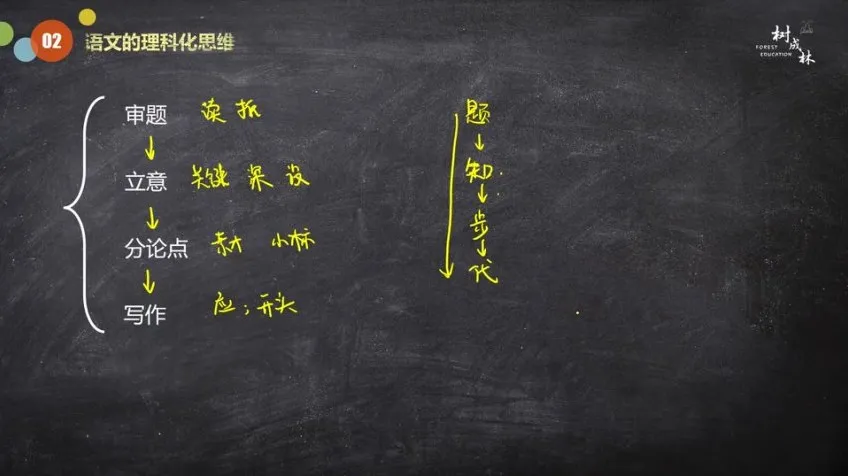 02 语文的理科化思维
树成林
FOREST
EDUCATION
审题 读 抓
立意 关键 梁 设
分论点 素才 小标
写作 应；开头
题
知
步
代